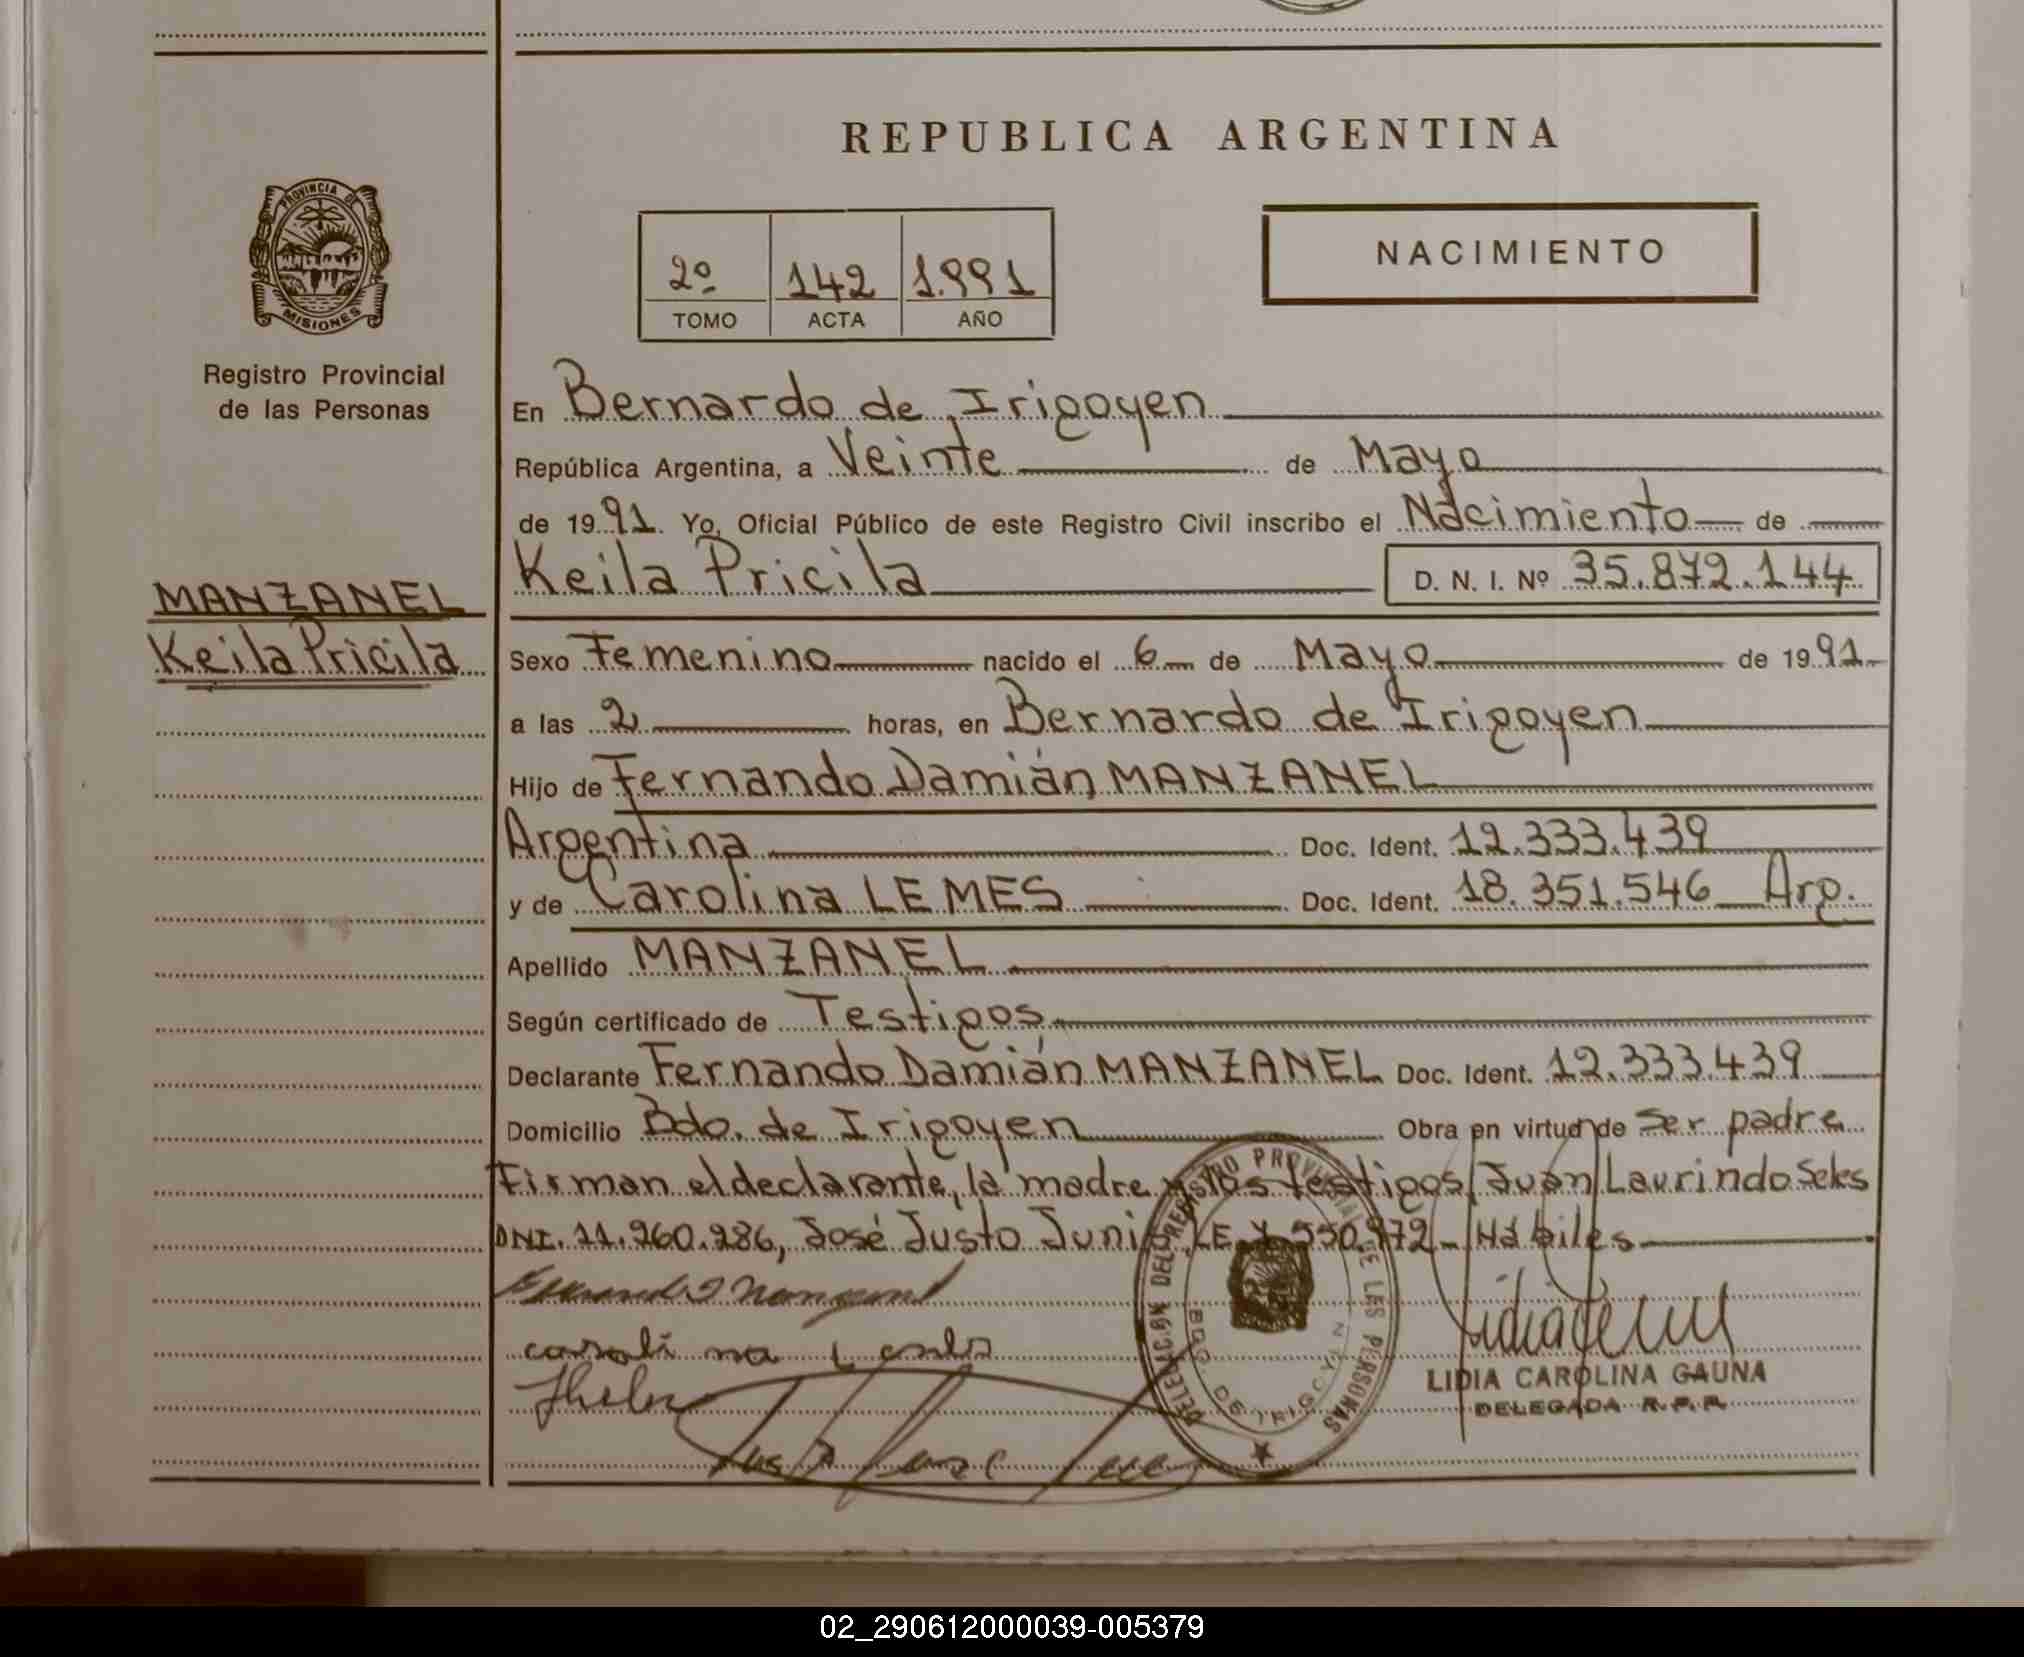 REPUBLICA ARGENTINA
PROVINCIA DE
MISIONES
Registro Provincial
de las Personas
NACIMIENTO
2º 142 1.991
TOMO ACTA AÑO
En Bernardo de Irigoyen
República Argentina, a Veinte de Mayo
de 1991. Yo, Oficial Público de este Registro Civil inscribo el Nacimiento de
Keila Pricila D. N. I. Nº 35.872.144
MANZANEL
Keila Pricila
Sexo Femenino nacido el 6 de Mayo de 1991
a las 2 horas, en Bernardo de Irigoyen
Hijo de Fernando Damián MANZANEL
Argentina Doc. Ident. 12.333.439
y de Carolina LEMES Doc. Ident. 18.351.546 Arg.
Apellido MANZANEL
Según certificado de Testigos
Declarante Fernando Damián MANZANEL Doc. Ident. 12.333.439
Domicilio Bdo. de Irigoyen Obra en virtud de ser padre
Firman el declarante, la madre y los testigos Juan Laurindo Seles
DNI. 11.260.286, José Justo Junio LE 550.972 - Hábiles
DELEGACION DEL REGISTRO PROVINCIAL DE LAS PERSONAS
BDO. DE IRIGOYEN
LIDIA CAROLINA GAUNA
DELEGADA R.P.P.
02_290612000039-005379